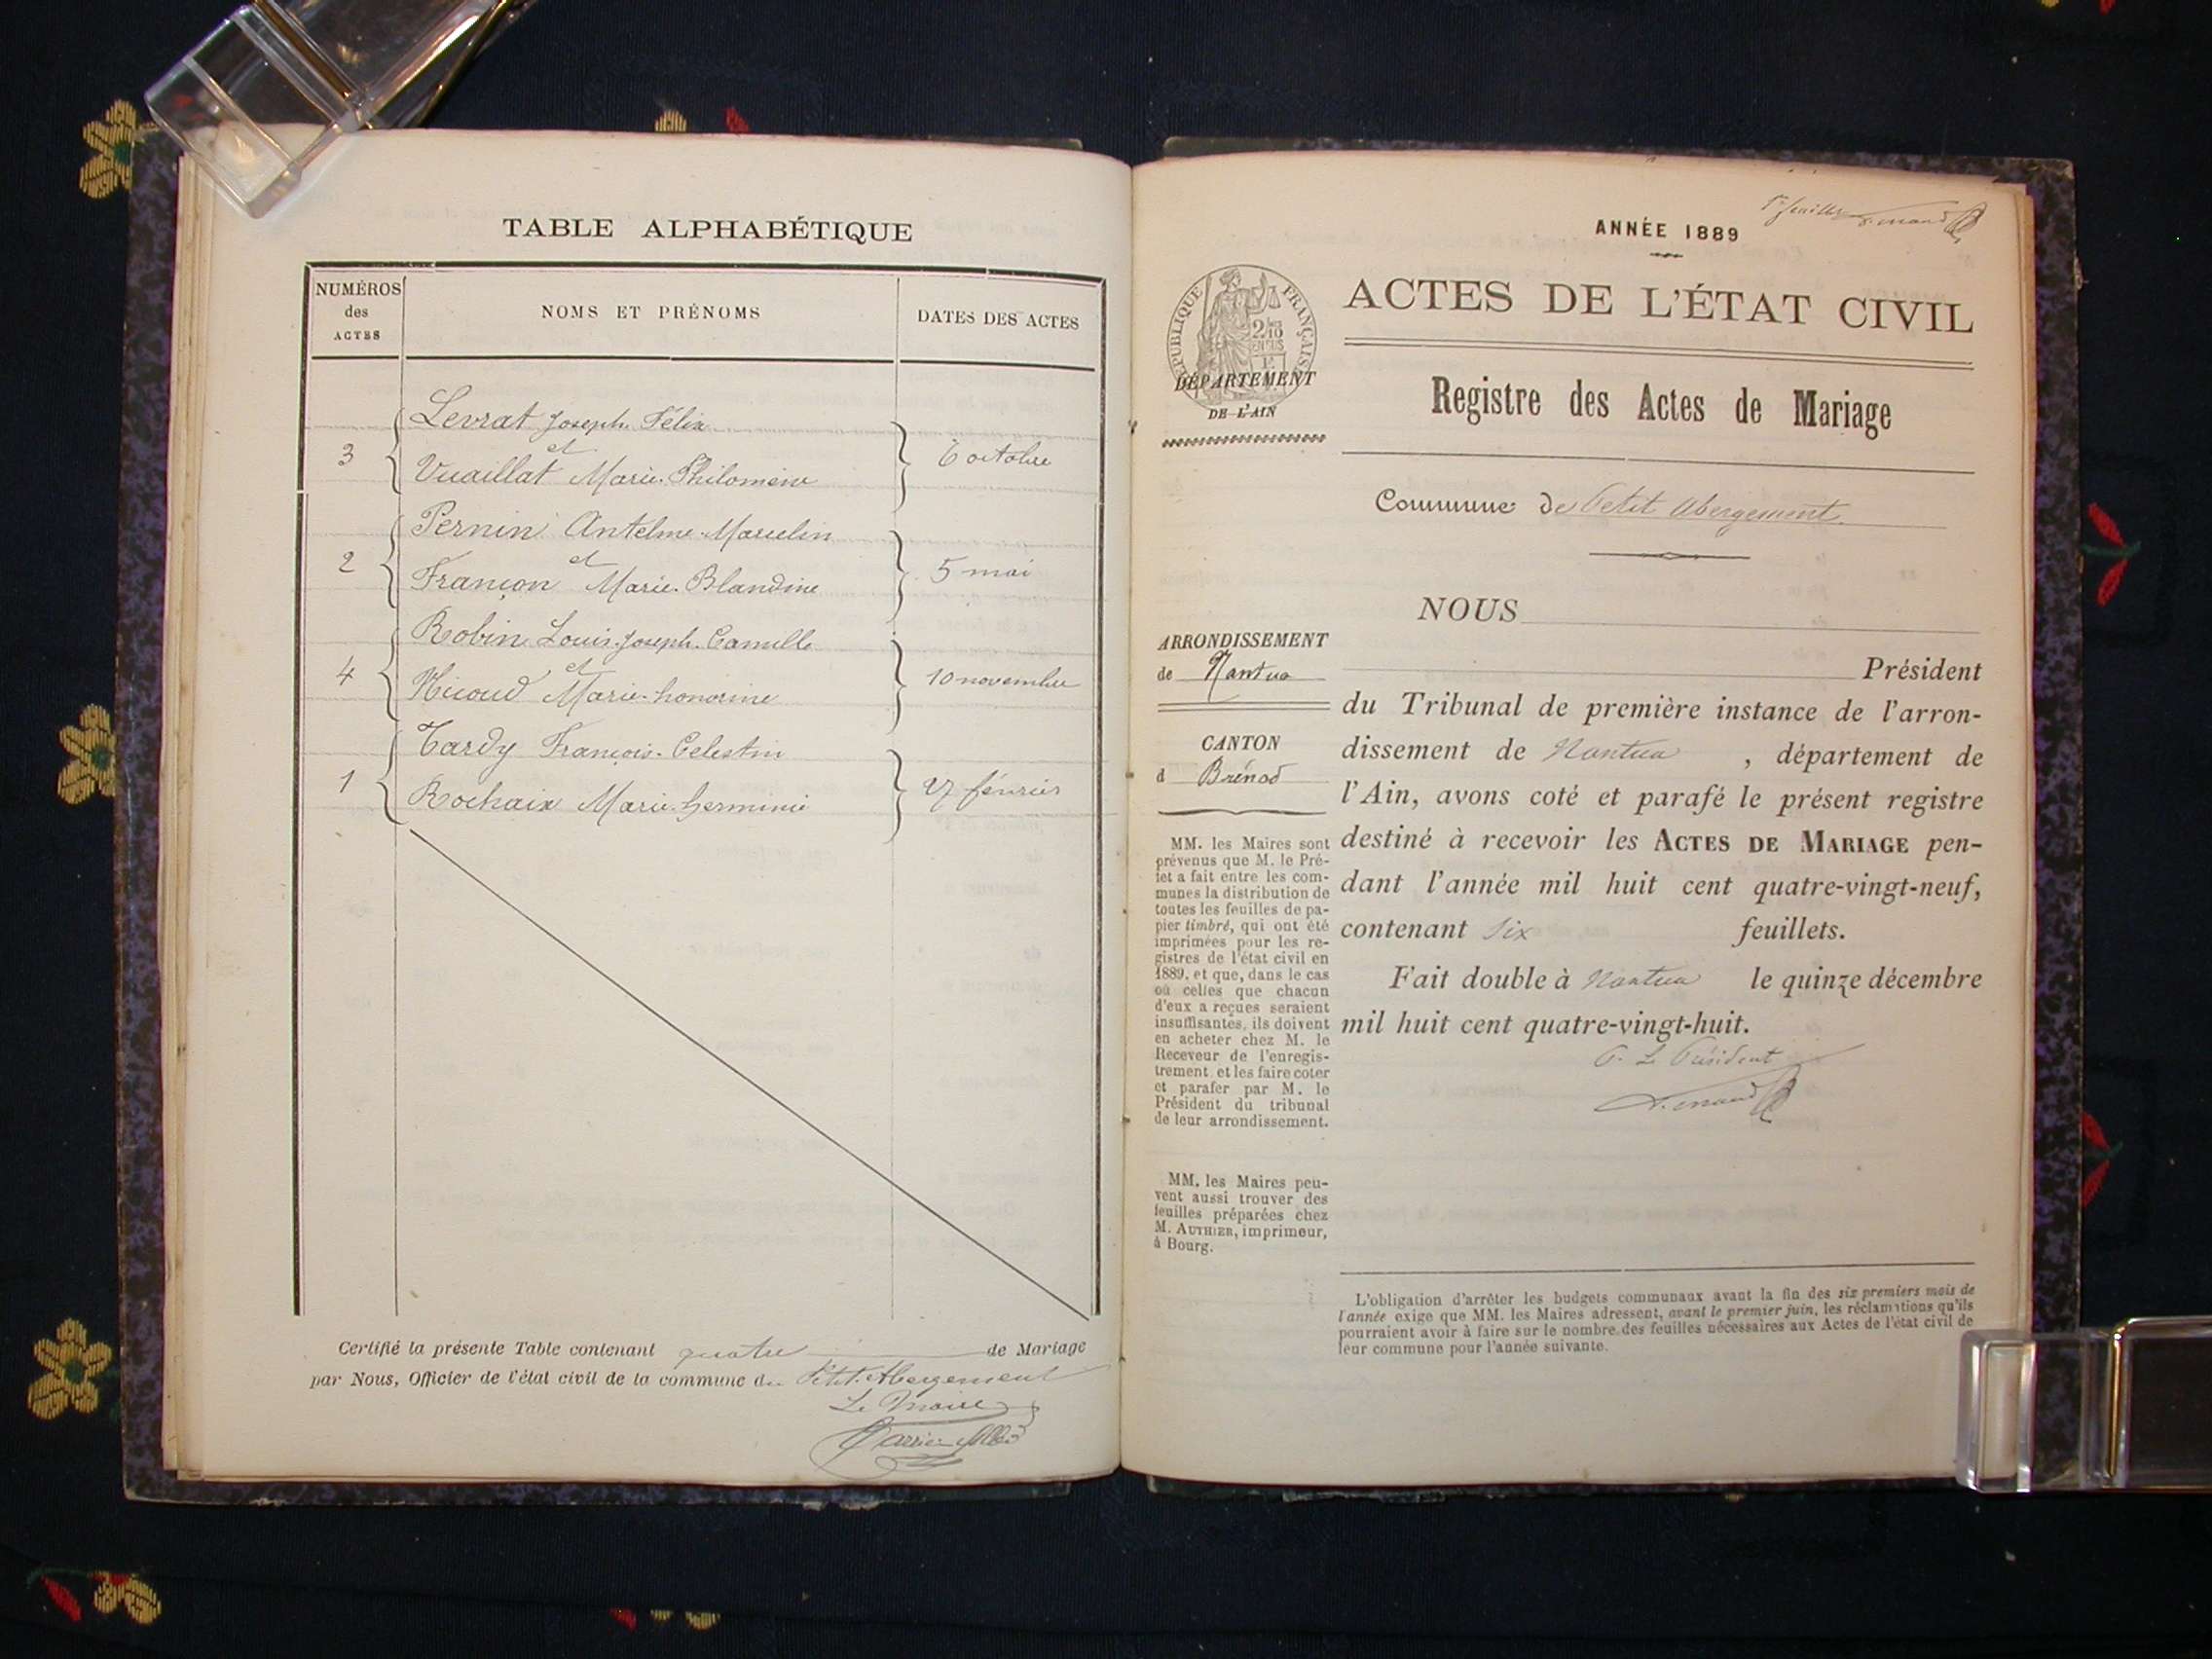 TABLE ALPHABÉTIQUE
NUMÉROS
des
ACTES
NOMS ET PRÉNOMS
DATES DES ACTES
Levrat Joseph Félix
et
3
6 octobre
Vuaillat Marie Philomène
Pernin Antelme Marcelin
et
2
5 mai
Françon Marie Blandine
Robin Louis Joseph Camille
et
4
10 novembre
Nicoud Marie honorine
Tardy François Celestin
1
27 février
Rochaix Marie herminie
Certifié la présente Table contenant quatre de Mariage
par Nous, Officier de l'état civil de la commune du Petit Abergement
Le Maire
ANNÉE 1889
RÉPUBLIQUE FRANÇAISE
ACTES DE L'ÉTAT CIVIL
DÉPARTEMENT
DE L'AIN
Registre des Actes de Mariage
Commune de Petit Abergement
NOUS
ARRONDISSEMENT
de Nantua
CANTON
d Brénod
Président
du Tribunal de première instance de l'arron-
dissement de Nantua , département de
l'Ain, avons coté et parafé le présent registre
destiné à recevoir les ACTES DE MARIAGE pen-
dant l'année mil huit cent quatre-vingt-neuf,
contenant six feuillets.
Fait double à Nantua le quinze décembre
mil huit cent quatre-vingt-huit.
P. Le Président
MM. les Maires sont
prévenus que M. le Pré-
fet a fait entre les com-
munes la distribution de
toutes les feuilles de pa-
pier timbré, qui ont été
imprimées pour les re-
gistres de l'état civil en
1889, et que, dans le cas
où celles que chacun
d'eux a reçues seraient
insuffisantes, ils doivent
en acheter chez M. le
Receveur de l'enregis-
trement et les faire coter
et parafer par M. le
Président du tribunal
de leur arrondissement.
MM. les Maires peu-
vent aussi trouver des
feuilles préparées chez
M. AUTHIER, imprimeur,
à Bourg.
L'obligation d'arrêter les budgets communaux avant la fin des six premiers mois de
l'année exige que MM. les Maires adressent, avant le premier juin, les réclamations qu'ils
pourraient avoir à faire sur le nombre des feuilles nécessaires aux Actes de l'état civil de
leur commune pour l'année suivante.